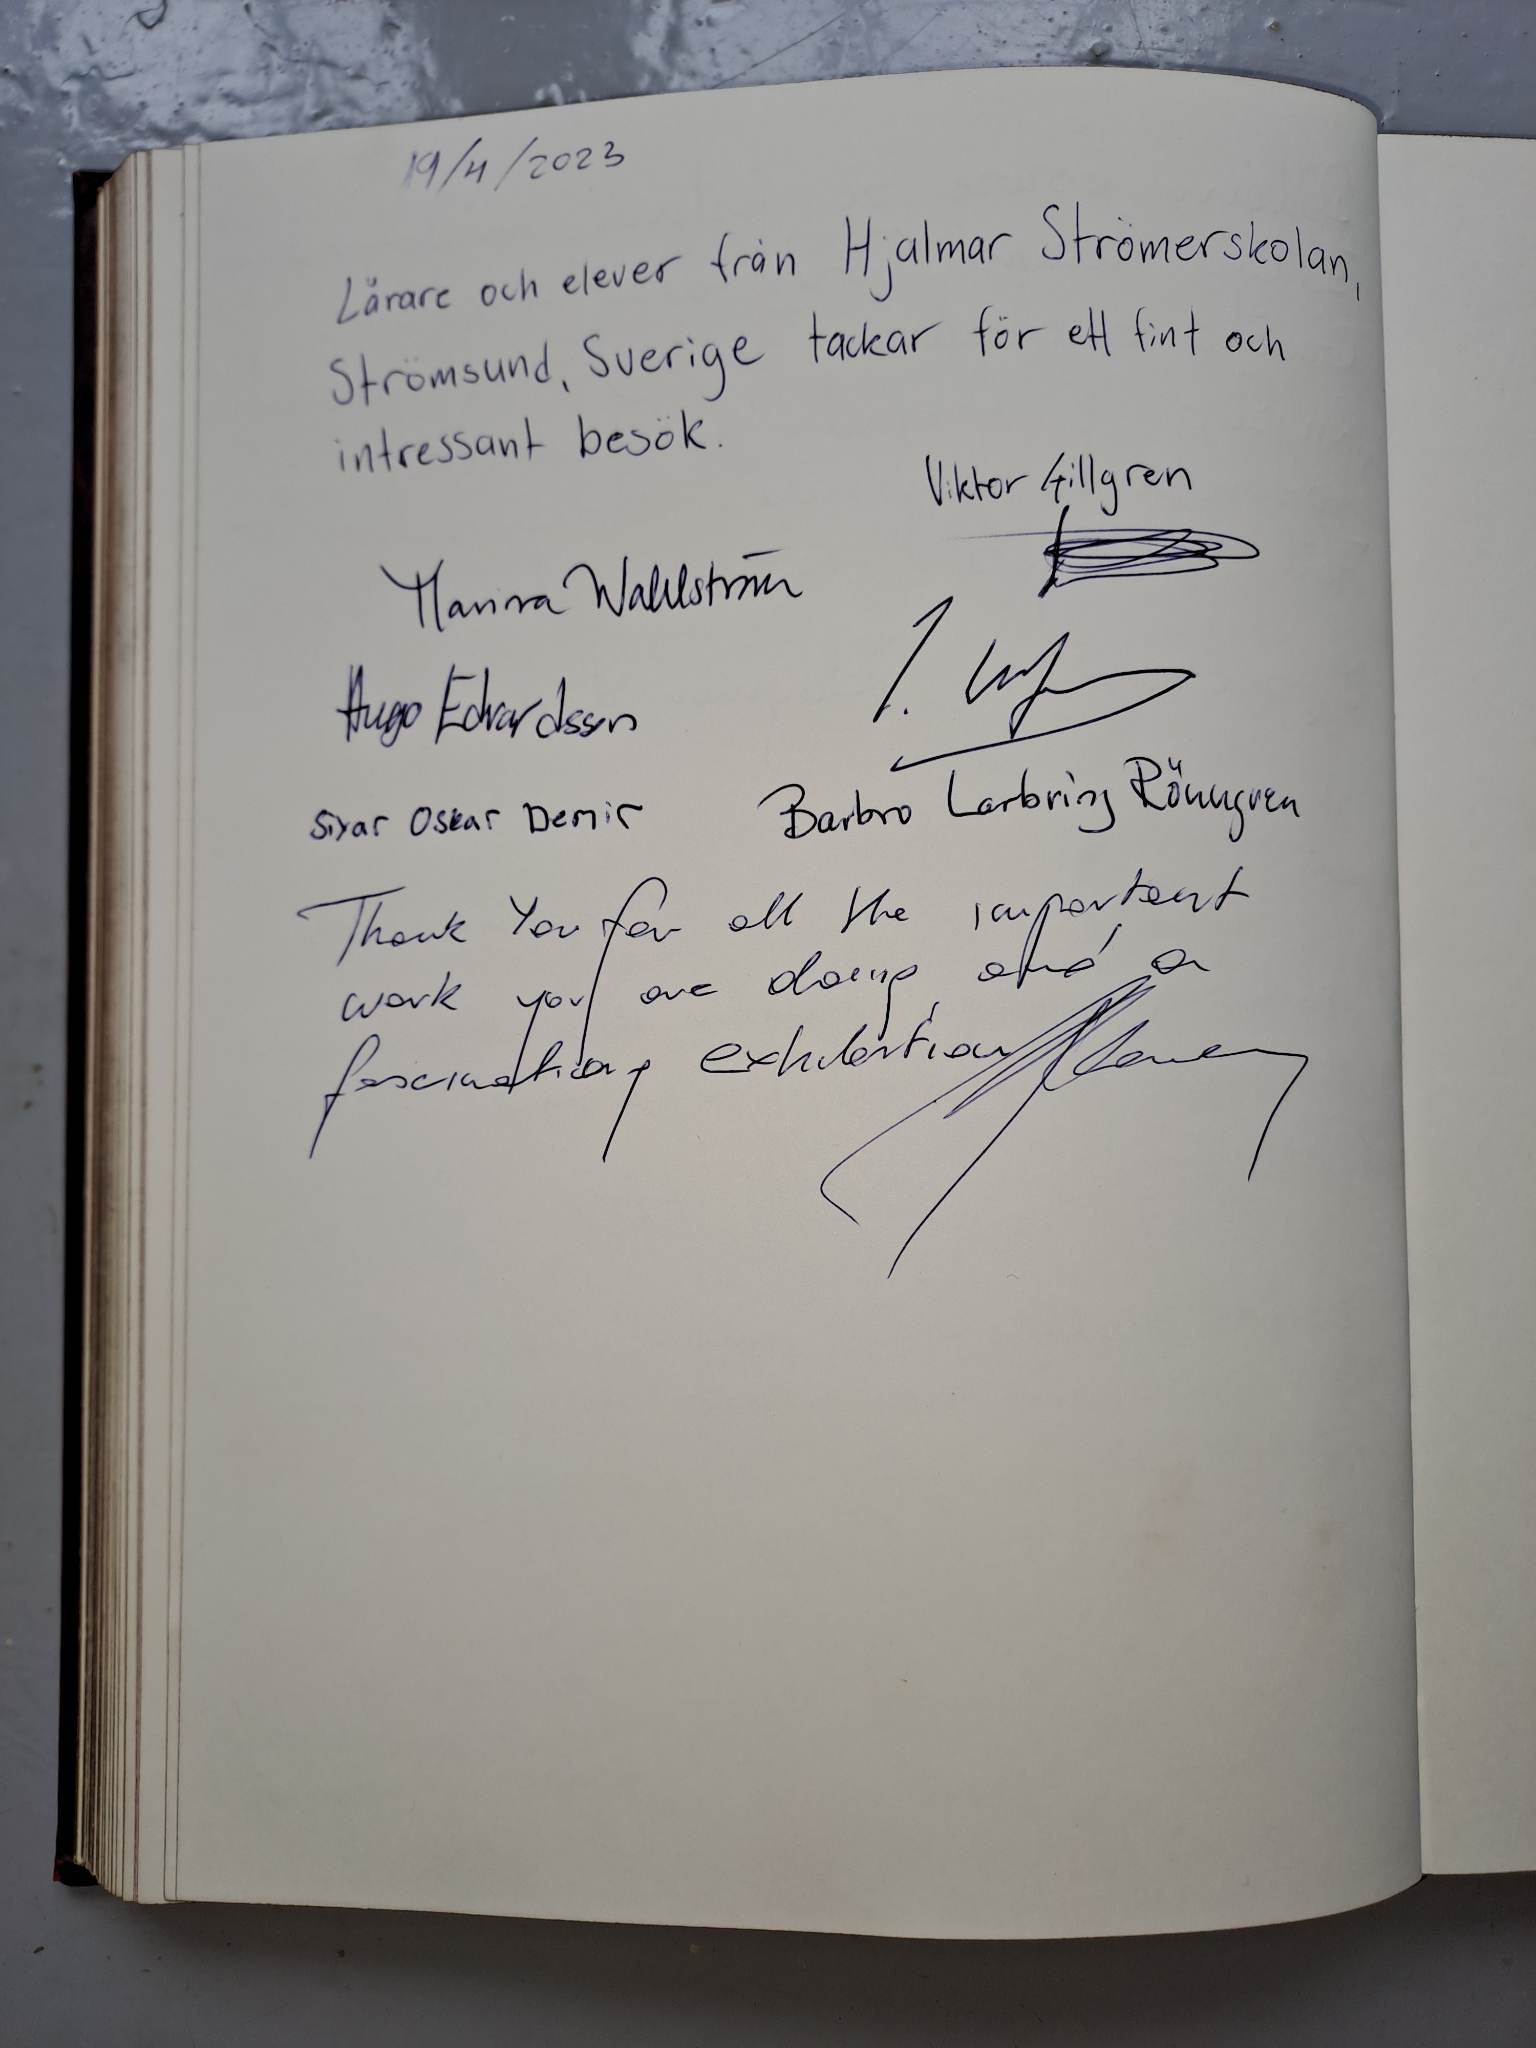 19/4/2023
Lärare och elever från Hjalmar Strömerskolan,
Strömsund, Sverige tackar för ett fint och
intressant besök.
Viktor Gillgren
Marina Wahlström
Hugo Edvardsson
Siyar Oskar Demir
Barbro Larbring Rönngren
Thank You for all the important
work you are doing, and a
fascinating exhibition